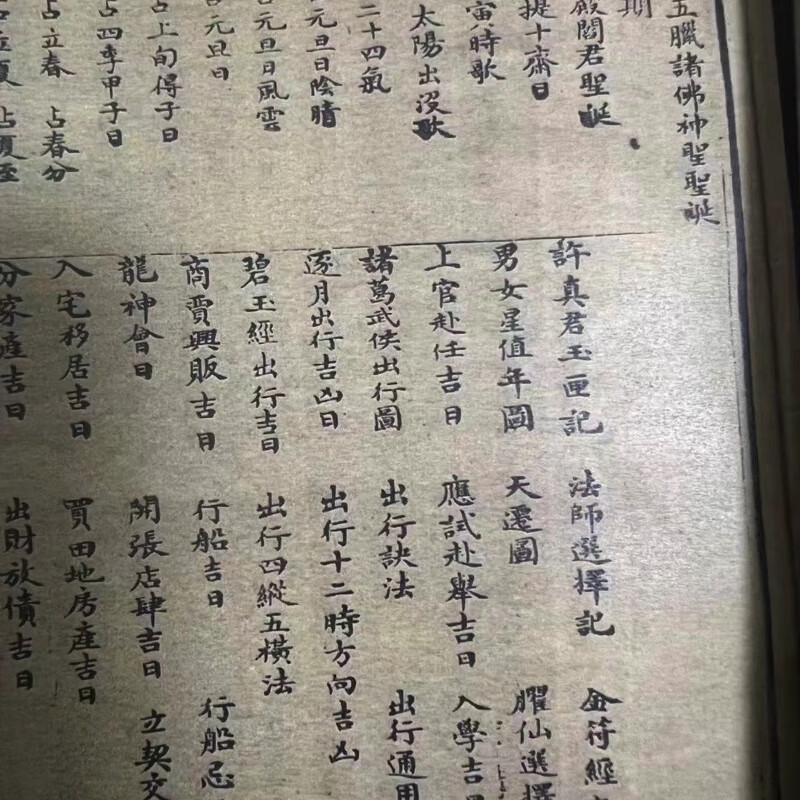 五臘諸佛神聖聖誕
期
殿閻君聖誕
提十齋日
寅時歌
太陽出沒歌
二十四氣
元旦日陰晴
元旦日風雲
元旦日
占上旬得子日
占四季甲子日
占立春 占春分
占立夏 占夏至
許真君玉匣記 法師選擇記 金符經
男女星值年圖 天遷圖 臞仙選擇
上官赴任吉日 應試赴舉吉日 入學吉日
諸葛武侯出行圖 出行訣法 出行通用
逐月出行吉凶日 出行十二時方向吉凶
碧玉經出行吉日 出行四縱五橫法
商賈興販吉日 行船吉日 行船忌
龍神會日 開張店肆吉日 立契交
入宅移居吉日 買田地房產吉日
分家產吉日 出財放債吉日